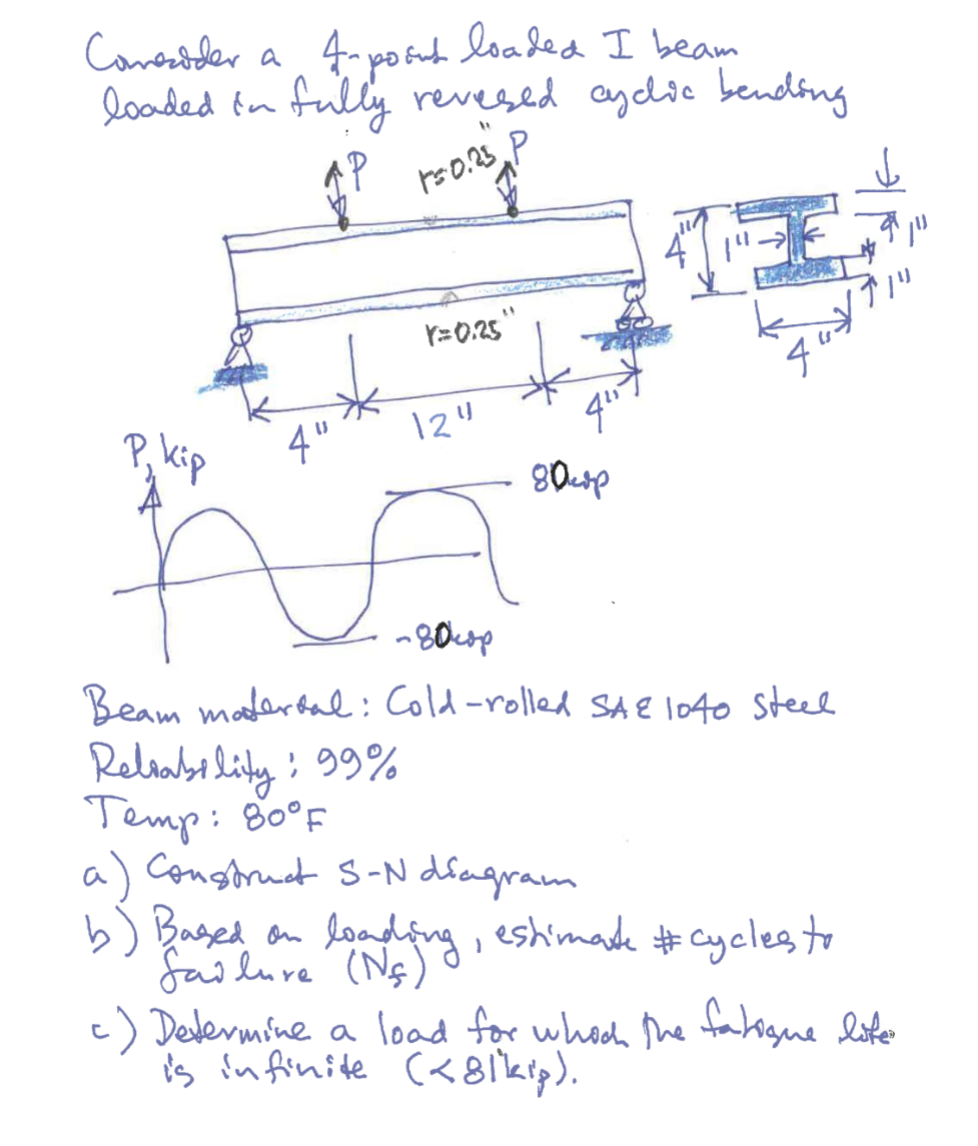 Consider a 4-point loaded I beam
loaded in fully reversed cyclic bending
P
r=0.25"
P
4"
1"
1"
1"
4"
r=0.25"
4"
12"
4"
P, kip
80kip
-80kip
Beam material: Cold-rolled SAE 1040 steel
Reliability: 99%
Temp: 80°F
a) Construct S-N diagram
b) Based on loading, estimate # cycles to
failure (Nf)
c) Determine a load for which the fatigue life
is infinite (<81kip).